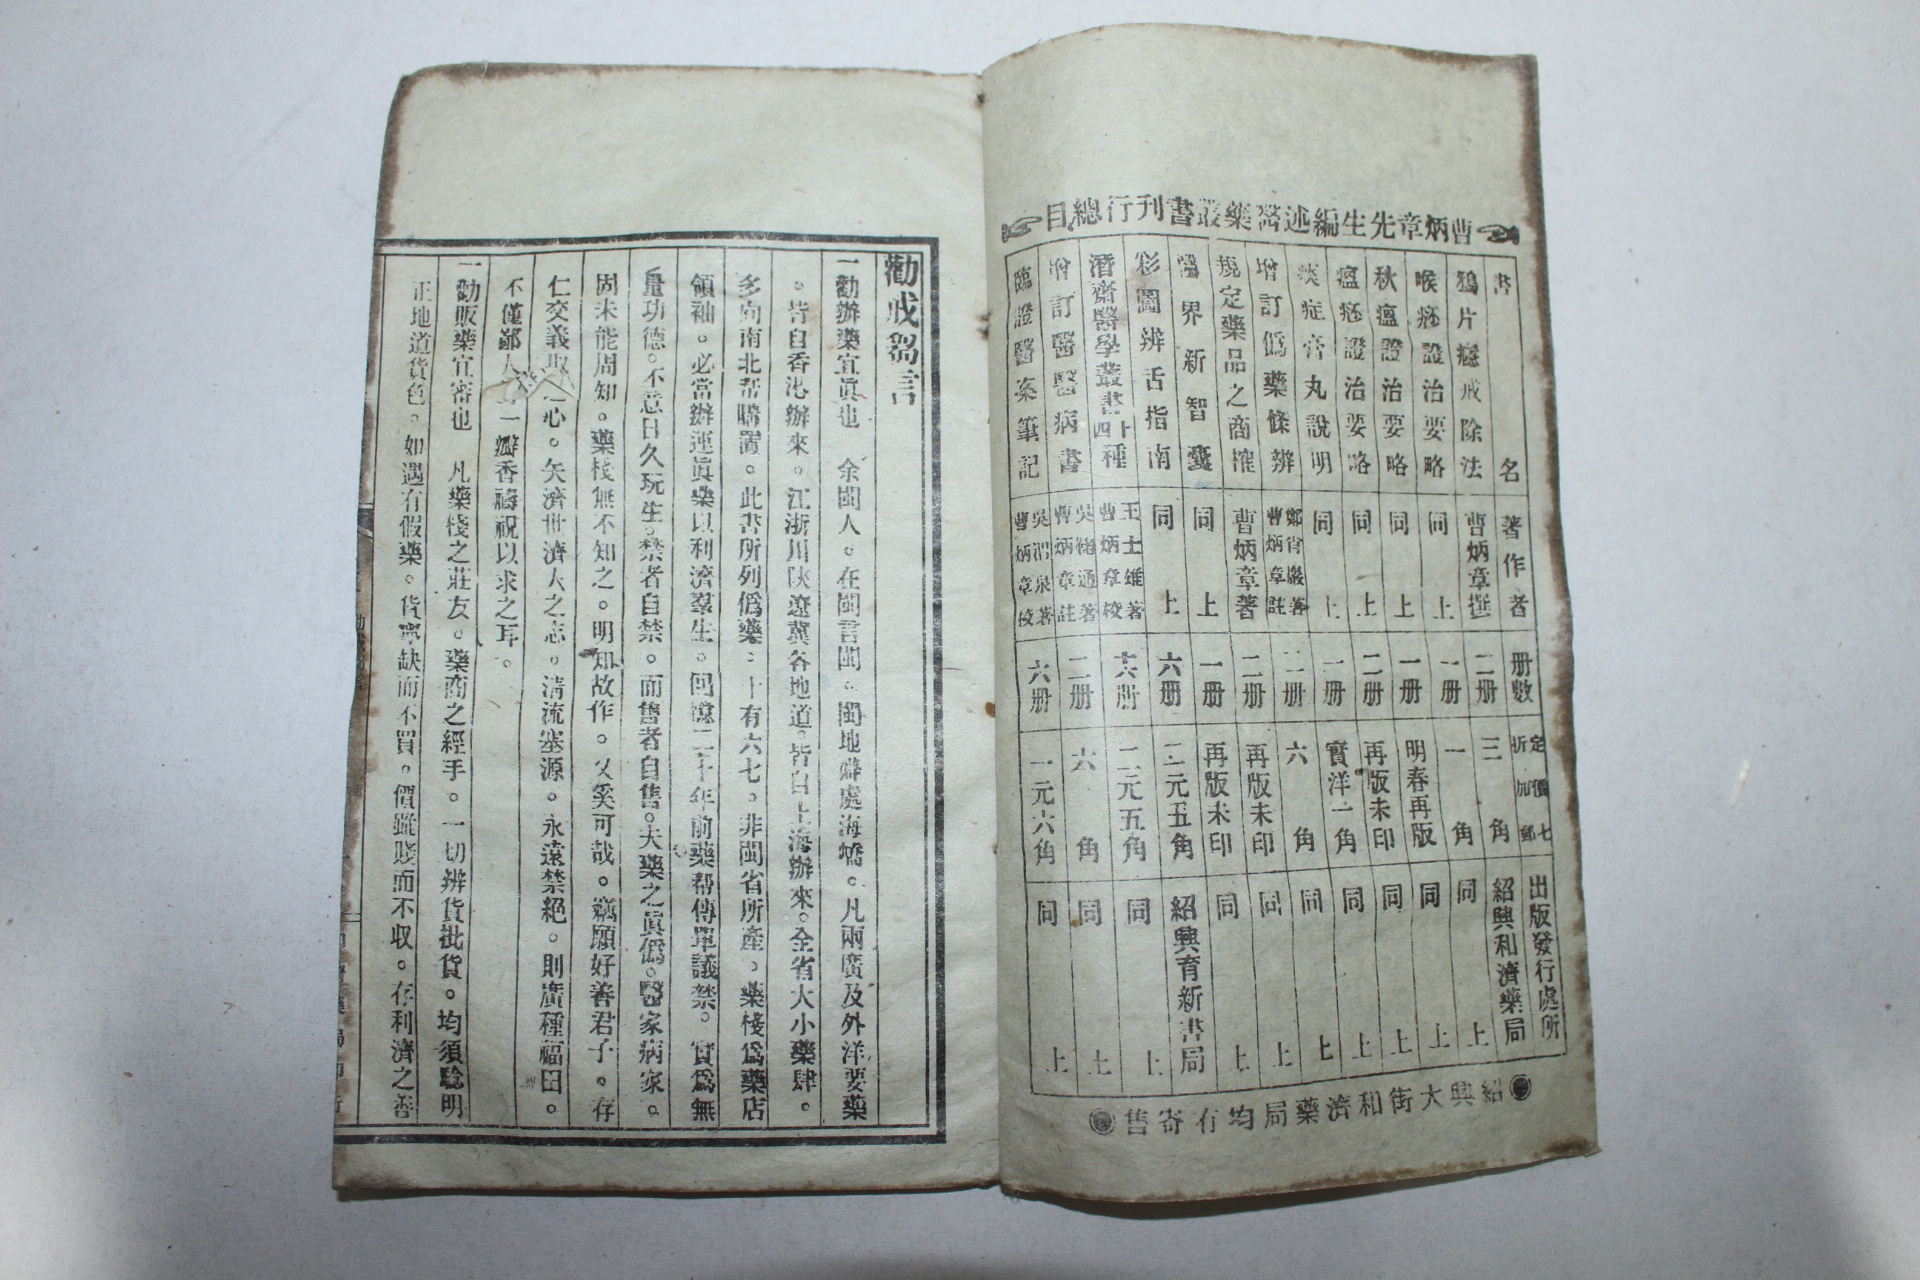 曹炳章先生編述醫藥叢書刊行總目
書名 著作者 册數 定價七折加郵 出版發行處所
鴉片癮戒除法 曹炳章撰 二册 三角 紹興和濟藥局
喉痧證治要略 同上 一册 一角 同上
秋瘟證治要略 同上 一册 明春再版 同上
瘟痧證治要略 同上 二册 再版未印 同上
痰症膏丸說明 同上 一册 實洋一角 同上
增訂僞藥條辨 鄭肖巖著 曹炳章註 二册 六角 同上
規定藥品之商榷 曹炳章著 二册 再版未印 同上
醫界新智囊 同上 一册 再版未印 同上
彩圖辨舌指南 同上 六册 二元五角 紹興育新書局
潛齋醫學叢書十四種 王士雄著 曹炳章校 十六册 二元五角 同上
增訂醫醫病書 吳鞠通著 曹炳章註 二册 六角 同上
臨證醫案筆記 吳渭泉著 曹炳章校 六册 一元六角 同上
紹興大街和濟藥局均有寄售
勸戒芻言
一勸辦藥宜眞也 余閩人。在閩言閩。閩地僻處海嶠。凡兩廣及外洋要藥
。皆自香港辦來。江浙川陝遼冀各地道。皆自上海辦來。全省大小藥肆。
多向南北帮購置。此書所列僞藥。十有六七。非閩省所產。藥棧爲藥店
領袖。必當辦運眞藥以利濟羣生。回憶二十年前藥帮傳單議禁。實爲無
量功德。不意日久玩生。禁者自禁。而售者自售。夫藥之眞僞。醫家病家。
固未能周知。藥棧無不知之。明知故作。又奚可哉。竊願好善君子。存
仁交義取之心。矢濟世濟人之志。清流塞源。永遠禁絕。則廣種福田。
不僅鄙人一瓣香禱祝以求之耳。
一勸販藥宜審也 凡藥棧之莊友。藥商之經手。一切辨貨批貨。均須騐明
正地道貨色。如遇有假藥。貨寧缺而不買。價雖賤而不収。存利濟之善